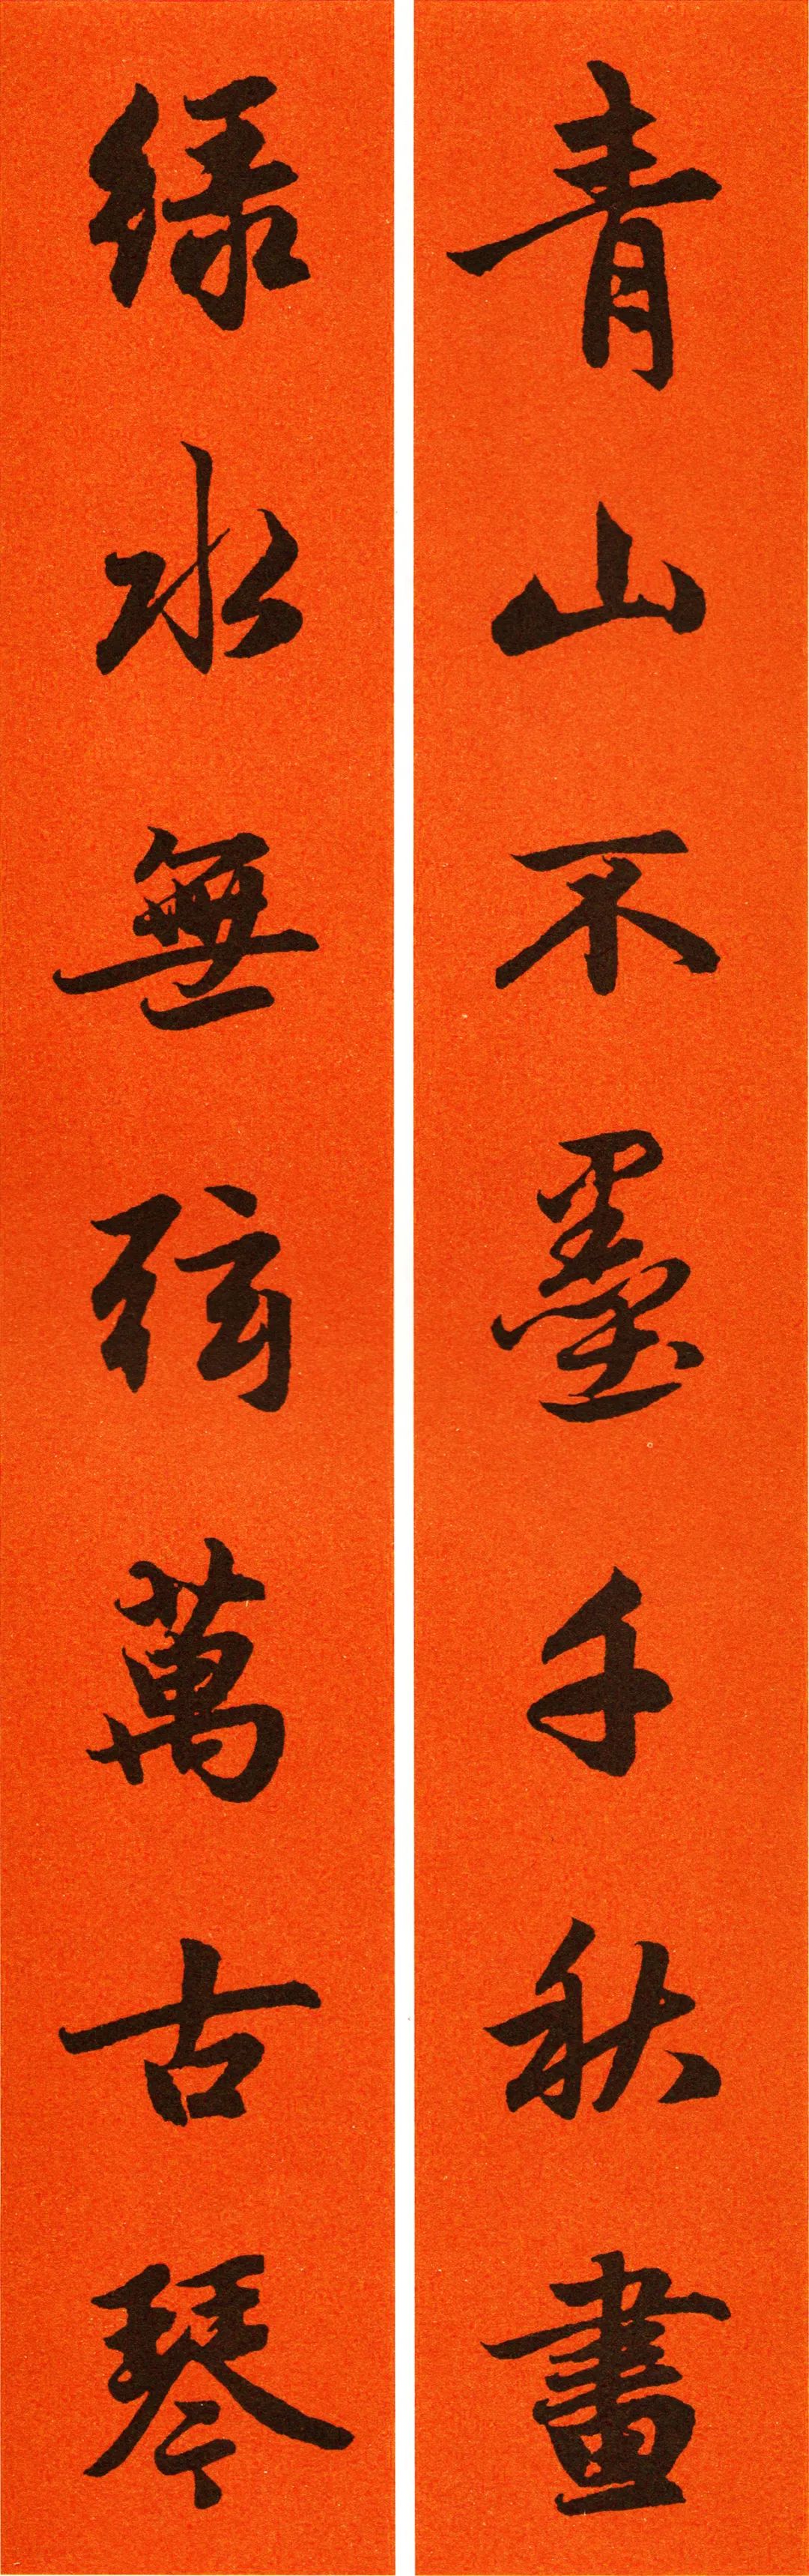 青山不墨千秋畫
緑水無弦萬古琴